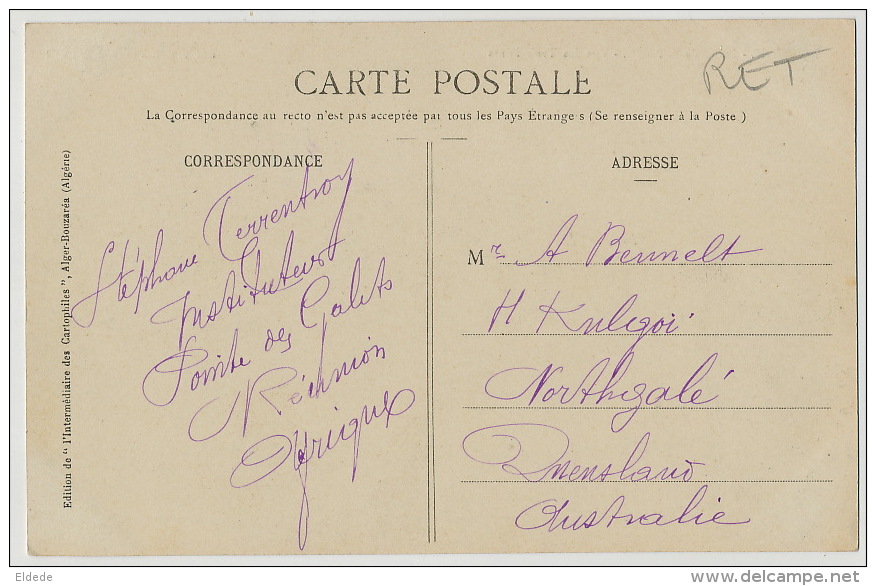 RET
CARTE POSTALE
La Correspondance au recto n'est pas acceptée par tous les Pays Étrangers (Se renseigner à la Poste)
Edition de "l'Intermédiaire des Cartophiles", Alger-Bouzaréa (Algérie)
CORRESPONDANCE
Stéphane Terrentroy
Instituteur
Pointe des Galets
Réunion
Afrique
ADRESSE
Mr A Bennelt
H Kuligoi
Northgalé
Queensland
Australie
Eldede
www.delcampe.net